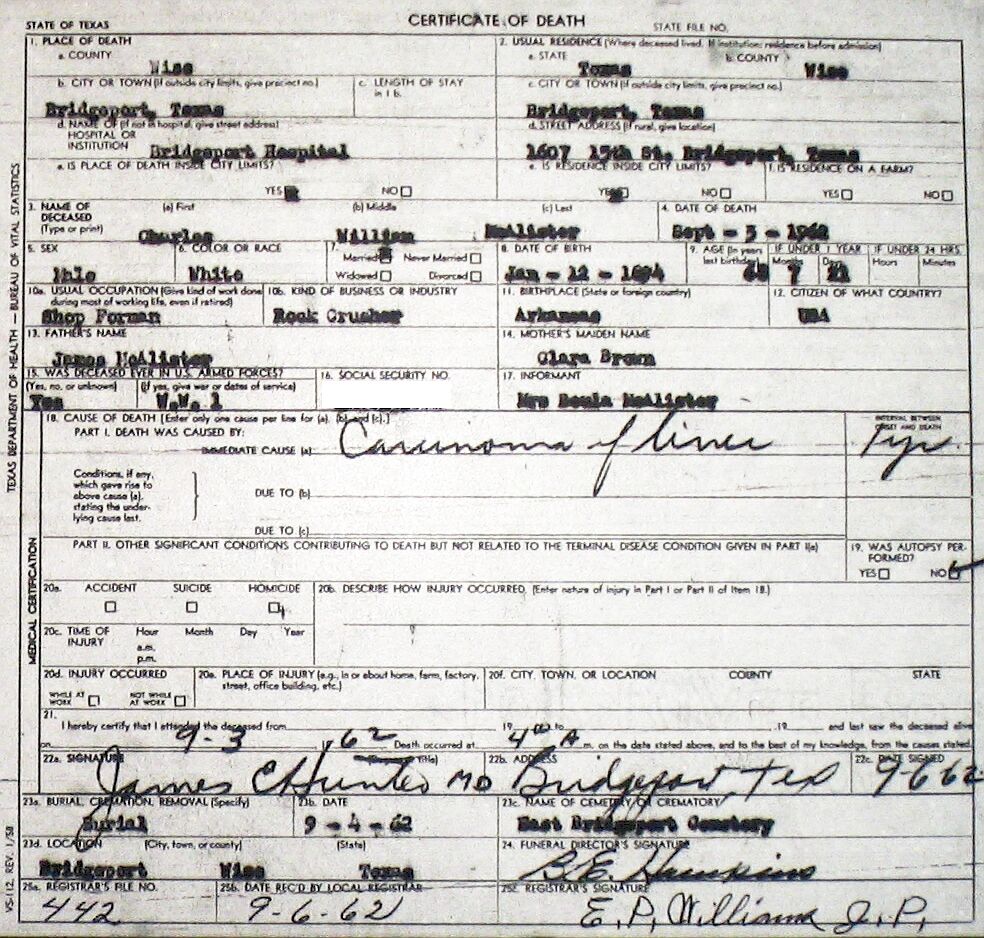 CERTIFICATE OF DEATH
STATE OF TEXAS
STATE FILE NO.
TEXAS DEPARTMENT OF HEALTH — BUREAU OF VITAL STATISTICS
1. PLACE OF DEATH
a. COUNTY
Wise
2. USUAL RESIDENCE (Where deceased lived. If institution: residence before admission)
a. STATE
Texas
b. COUNTY
Wise
b. CITY OR TOWN (If outside city limits, give precinct no.)
Bridgeport, Texas
c. LENGTH OF STAY in 1 b.
c. CITY OR TOWN (If outside city limits, give precinct no.)
Bridgeport, Texas
d. NAME OF (If not in hospital, give street address)
HOSPITAL OR
INSTITUTION
Bridgeport Hospital
d. STREET ADDRESS (If rural, give location)
1607 15th St. Bridgeport, Texas
e. IS PLACE OF DEATH INSIDE CITY LIMITS?
YES NO
e. IS RESIDENCE INSIDE CITY LIMITS?
YES NO
f. IS RESIDENCE ON A FARM?
YES NO
3. NAME OF
DECEASED
(Type or print)
(a) First
Charles
(b) Middle
William
(c) Last
McAlister
4. DATE OF DEATH
Sept - 3 - 1962
5. SEX
6. COLOR OR RACE
White
7.
Married Never Married
Widowed Divorced
8. DATE OF BIRTH
Jan - 12 - 1894
9. AGE (In years last birthday)
68
IF UNDER 1 YEAR
Months Days
7 21
IF UNDER 24 HRS.
Hours Minutes
10a. USUAL OCCUPATION (Give kind of work done during most of working life, even if retired)
Shop Forman
10b. KIND OF BUSINESS OR INDUSTRY
Rock Crusher
11. BIRTHPLACE (State or foreign country)
Arkansas
12. CITIZEN OF WHAT COUNTRY?
USA
13. FATHER'S NAME
James McAlister
14. MOTHER'S MAIDEN NAME
Clara Brown
15. WAS DECEASED EVER IN U.S. ARMED FORCES?
(Yes, no, or unknown) (If yes, give war or dates of service)
Yes W.W. 1
16. SOCIAL SECURITY NO.
17. INFORMANT
Mrs Beula McAlister
MEDICAL CERTIFICATION
18. CAUSE OF DEATH [Enter only one cause per line for (a), (b) and (c).]
PART I. DEATH WAS CAUSED BY:
IMMEDIATE CAUSE (a)
Carcinoma of liver
INTERVAL BETWEEN
ONSET AND DEATH
1 yr.
Conditions, if any,
which gave rise to
above cause (a),
stating the under-
lying cause last.
DUE TO (b)
DUE TO (c)
PART II. OTHER SIGNIFICANT CONDITIONS CONTRIBUTING TO DEATH BUT NOT RELATED TO THE TERMINAL DISEASE CONDITION GIVEN IN PART I(a)
19. WAS AUTOPSY PER-
FORMED?
YES NO
20a. ACCIDENT SUICIDE HOMICIDE
20b. DESCRIBE HOW INJURY OCCURRED. (Enter nature of injury in Part I or Part II of Item 18.)
20c. TIME OF
INJURY
Hour Month Day Year
a.m.
p.m.
20d. INJURY OCCURRED
WHILE AT
WORK
NOT WHILE
AT WORK
20e. PLACE OF INJURY (e.g., in or about home, farm, factory,
street, office building, etc.)
20f. CITY, TOWN, OR LOCATION COUNTY STATE
21.
I hereby certify that I attended the deceased from 19 to 19 and last saw the deceased alive
on 9-3 19 62 Death occurred at 4 A m. on the date stated above, and to the best of my knowledge, from the causes stated.
22a. SIGNATURE (Degree or title)
James C Hunter MD
22b. ADDRESS
Bridgeport, Tex
22c. DATE SIGNED
9-6-62
23a. BURIAL, CREMATION, REMOVAL (Specify)
Burial
23b. DATE
9 - 4 - 62
23c. NAME OF CEMETERY OR CREMATORY
East Bridgeport Cemetery
23d. LOCATION (City, town, or county) (State)
Bridgeport Wise Texas
24. FUNERAL DIRECTOR'S SIGNATURE
B.E. Hawkins
25a. REGISTRAR'S FILE NO.
442
25b. DATE REC'D BY LOCAL REGISTRAR
9-6-62
25c. REGISTRAR'S SIGNATURE
E. P. Williams J. P.
VS-112, REV. 1/58